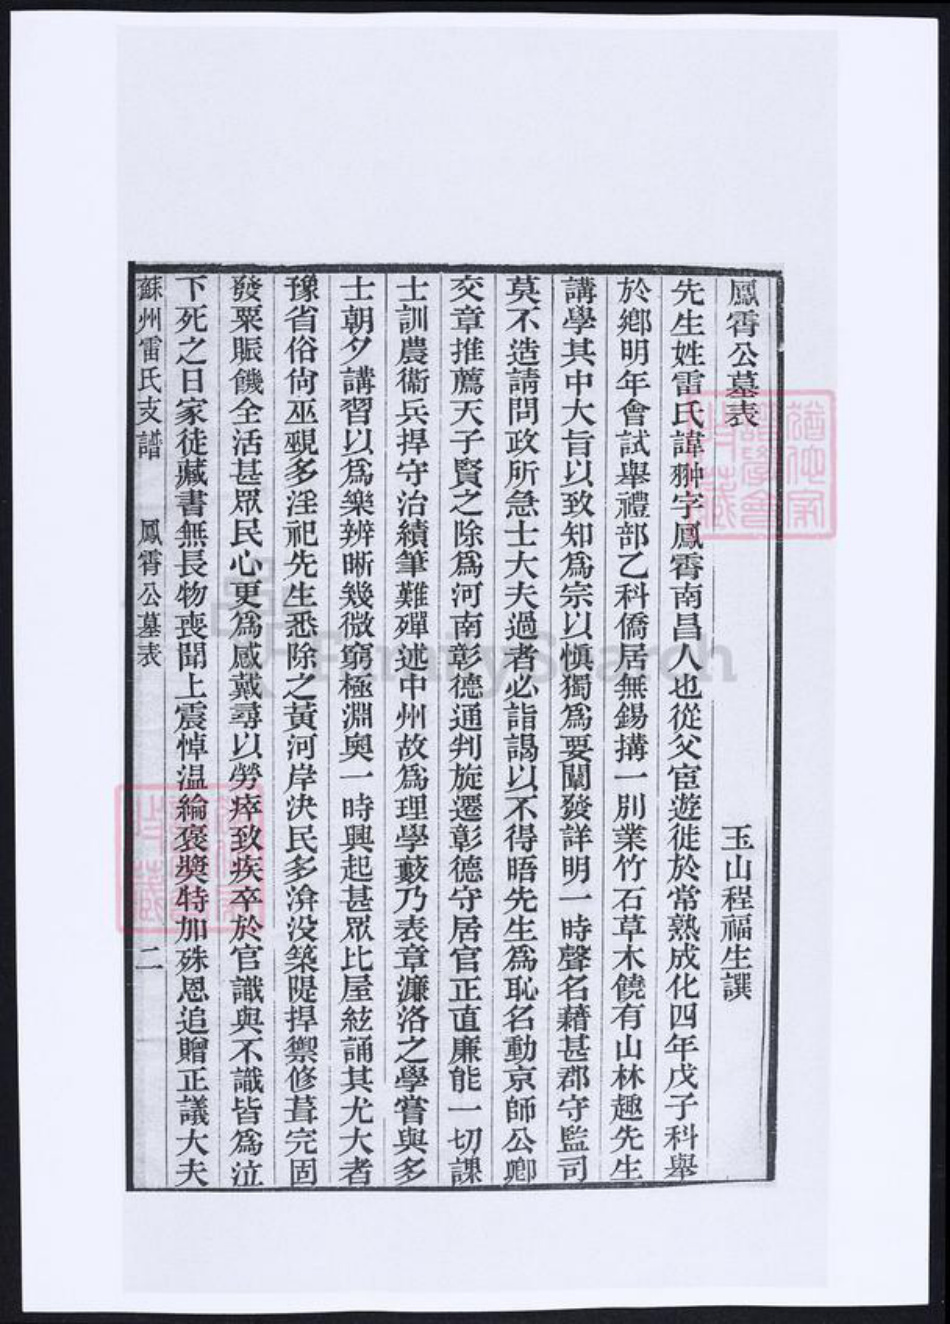 鳳霄公墓表
玉山程福生譔
先生姓雷氏諱翀字鳳霄南昌人也從父宦遊徙於常熟成化四年戊子科舉
於鄉明年會試舉禮部乙科僑居無錫搆一別業竹石草木饒有山林趣先生
講學其中大旨以致知為宗以慎獨為要闡發詳明一時聲名藉甚郡守監司
莫不造請問政所急士大夫過者必詣謁以不得晤先生為恥名動京師公卿
交章推薦天子賢之除為河南彰德通判旋遷彰德守居官正直廉能一切課
士訓農衞兵捍守治績筆難殫述中州故為理學藪乃表章濂洛之學嘗與多
士朝夕講習以為樂辨晰幾微窮極淵奧一時興起甚眾比屋絃誦其尤大者
豫省俗尙巫覡多淫祀先生悉除之黃河岸決民多渰没築隄捍禦修葺完固
發粟賑饑全活甚眾民心更為感戴尋以勞瘁致疾卒於官識與不識皆為泣
下死之日家徒藏書無長物喪聞上震悼温綸褒奬特加殊恩追贈正議大夫
蘇州雷氏支譜 鳳霄公墓表 二
FamilySearch